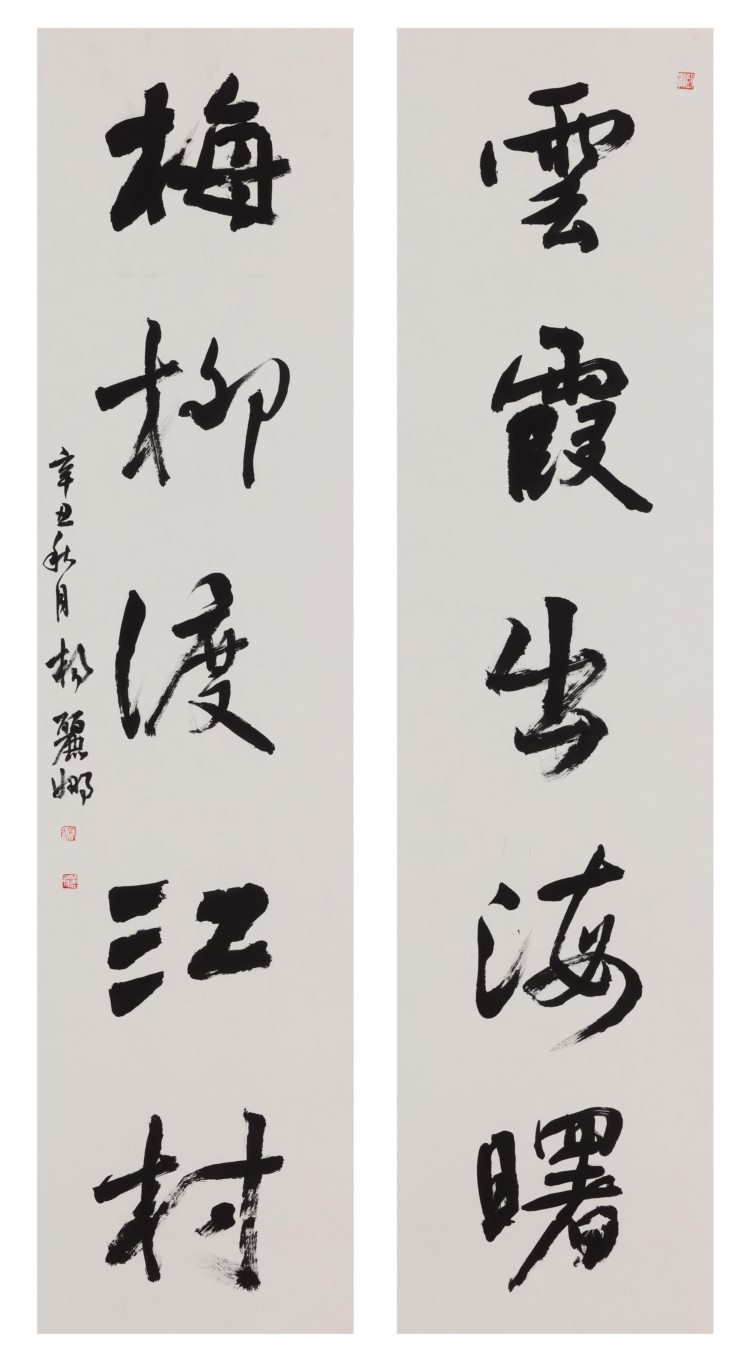 雲霞出海曙
梅柳渡江村
辛丑秋月楊麗娜